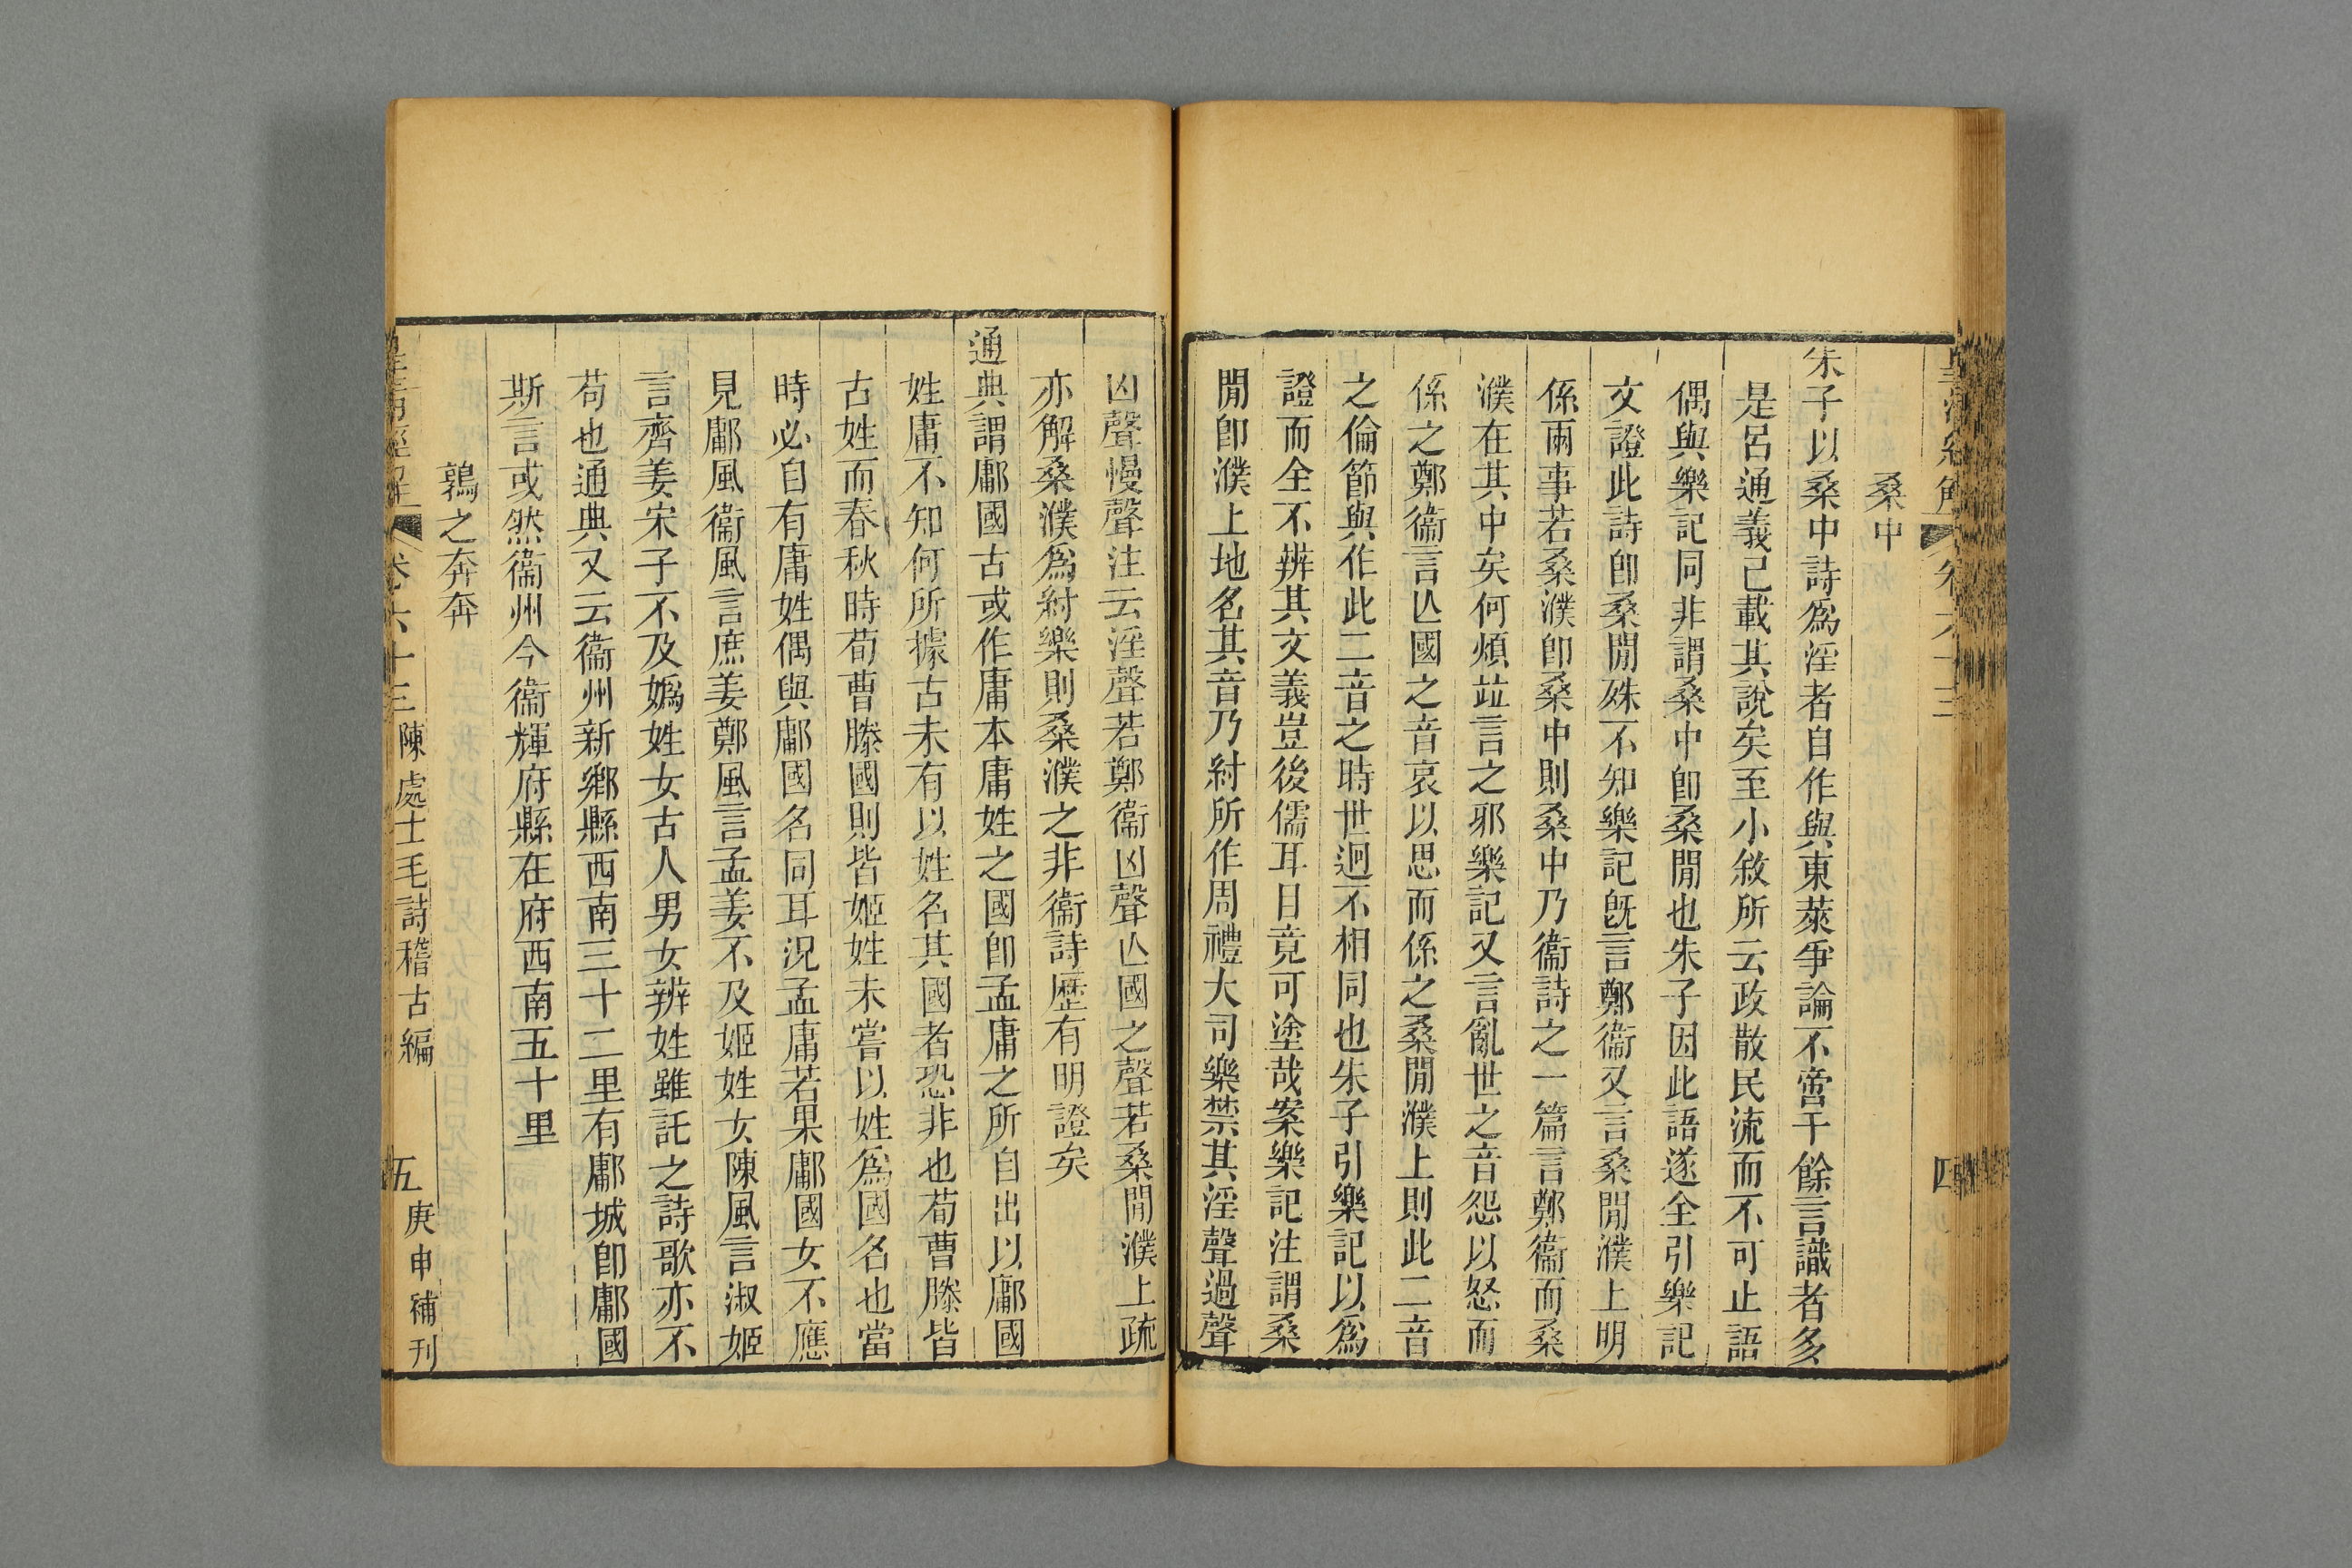 桑中
朱子以桑中詩爲淫者自作與東萊爭論不啻千餘言識者多
是呂通義已載其說矣至小敘所云政散民流而不可止語
偶與樂記同非謂桑中卽桑閒也朱子因此語遂全引樂記
文證此詩卽桑閒殊不知樂記旣言鄭衞又言桑閒濮上明
係兩事若桑濮卽桑中則桑中乃衞詩之一篇言鄭衞而桑
濮在其中矣何煩竝言之邪樂記又言亂世之音怨以怒而
係之鄭衞言亾國之音哀以思而係之桑閒濮上則此二音
之倫節與作此二音之時世迥不相同也朱子引樂記以爲
證而全不辨其文義豈後儒耳目竟可塗哉案樂記注謂桑
閒卽濮上地名其音乃紂所作周禮大司樂禁其淫聲過聲
凶聲慢聲注云淫聲若鄭衞凶聲亾國之聲若桑閒濮上疏
亦解桑濮爲紂樂則桑濮之非衞詩歷有明證矣
通典謂鄘國古或作庸本庸姓之國卽孟庸之所自出以鄘國
姓庸不知何所據古未有以姓名其國者恐非也荀曹滕皆
古姓而春秋時荀曹滕國則皆姬姓未嘗以姓爲國名也當
時必自有庸姓偶與鄘國名同耳況孟庸若果鄘國女不應
見鄘風衞風言庶姜鄭風言孟姜不及姬姓女陳風言淑姬
言齊姜宋子不及嬀姓女古人男女辨姓雖託之詩歌亦不
苟也通典又云衞州新鄉縣西南三十二里有鄘城卽鄘國
斯言或然衞州今衞輝府縣在府西南五十里
鶉之奔奔
皇清經解 卷六十三 陳處士毛詩稽古編 五 庚申補刊